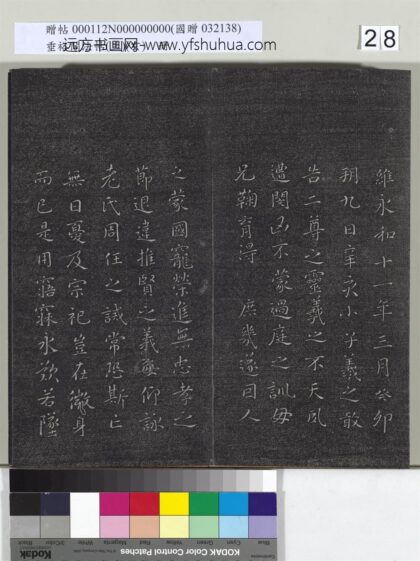 贈帖 000112N000000000(國贈 032138)
远方书画网 www.yfshuhua.com
28
維永和十一年三月癸卯
朔九日辛亥小子羲之敢
告二尊之靈羲之不天夙
遭閔凶不蒙過庭之訓母
兄鞠育得 庶幾遂因人
之蒙國寵榮進無忠孝之
節退違推賢之義每仰詠
老氏周任之誡常恐斯亡
無日憂及宗祀豈在微身
而已是用寤寐永歎若墜
KODAK Color Control Patches
Blue Cyan Green Yellow Red Magenta White 3/Color Black